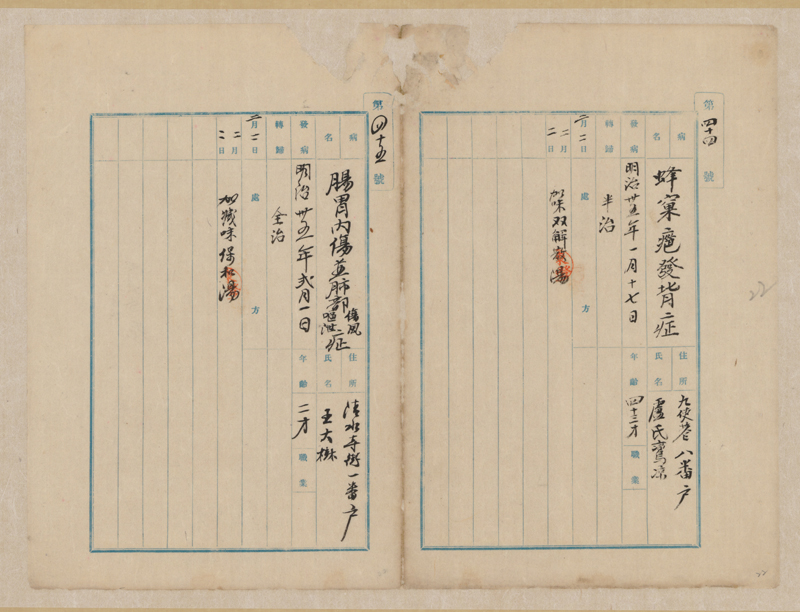 第四十四號
病名 蜂窠瘡發背症
住所 九使巷八番戶
氏名 盧氏鸞涼
發病 明治卅五年一月十七日
年齡 四十二才
職業
轉歸 半治
二月一日 處方
二月二日 加味双解散湯
第四十五號
病名 腸胃內傷並肺部傷風咀泄症
住所 清水寺街一番戶
氏名 王大樹
發病 明治卅五年弍月一日
年齡 二才
職業
轉歸 全治
二月一日 處方
二月二日 加減味保和湯
22